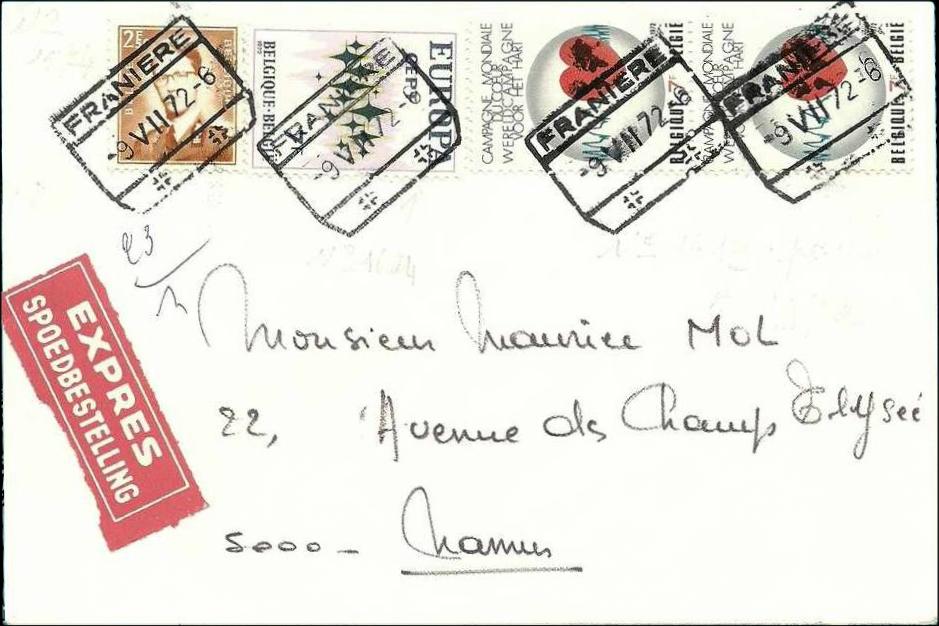 2F50
FRANIERE
-9 VII 72-6
BELGIQUE-BELGIË
EUROPA
CEPT
FRANIERE
-9 VII 72-6
CAMPAGNE MONDIALE
DU COEUR
WERELDCAMPAGNE
VOOR HET HART
BELGIQUE BELGIË
7F
FRANIERE
-9 VII 72-6
CAMPAGNE MONDIALE
DU COEUR
WERELDCAMPAGNE
VOOR HET HART
BELGIQUE BELGIË
7F
FRANIERE
-9 VII 72-6
23
EXPRES
SPOEDBESTELLING
Monsieur Maurice MOL
22, Avenue des Champs Elysée
5000- Namur